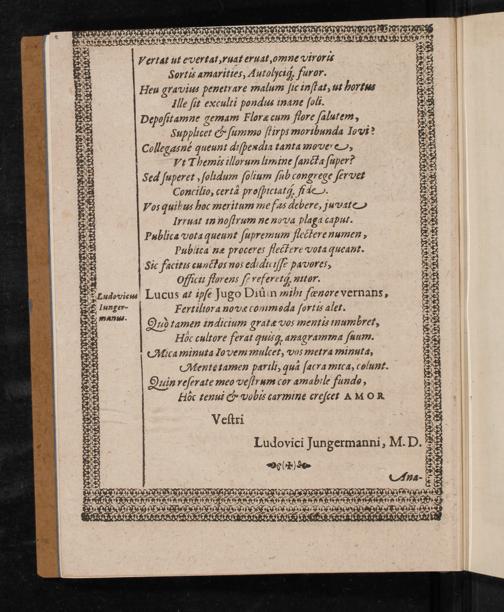 Vertat ut evertat, ruat eruat, omne viroris
Sortis amarities, Autolyciq́, furor.
Heu gravius penetrare malum sic instat, ut hortus
Ille sit exculti pondus inane soli.
Depositamne gemam Flora cum flore salutem,
Supplicet & summo stirps moribunda Iovi?
Collegasné queunt dispendia tanta movere,
Vt Themis illorum limine sancta super?
Sed superet, solidum solium sub congrege servet
Concilio, certâ prospiciatq́, fide.
Vos quibus hoc meritum me fas debere, juvate
Irruat in nostrum ne nova plaga caput.
Publica vota queunt supremum flectere numen,
Publica næ proceres flectere vota queant.
Sic facitis cunctos nos edidicisse pavores,
Officii florens se referetq́, nitor.
Ludovicus
Iunger-
manus.
Lucus at ipse Jugo Diûm mihi fœnore vernans,
Fertiliora novæ commoda sortis alet.
Quò tamen indicium gratæ vos mentis inumbret,
Hôc cultore ferat quisq, anagramma suum.
Mica minuta Iovem mulcet, vos metra minuta,
Mente tamen parili, quâ sacra mica, colunt.
Quin reserate meo vestrum cor amabile fundo,
Hôc tenui & vobis carmine crescet AMOR
Vestri
Ludovici Jungermanni, M. D.
Ana-